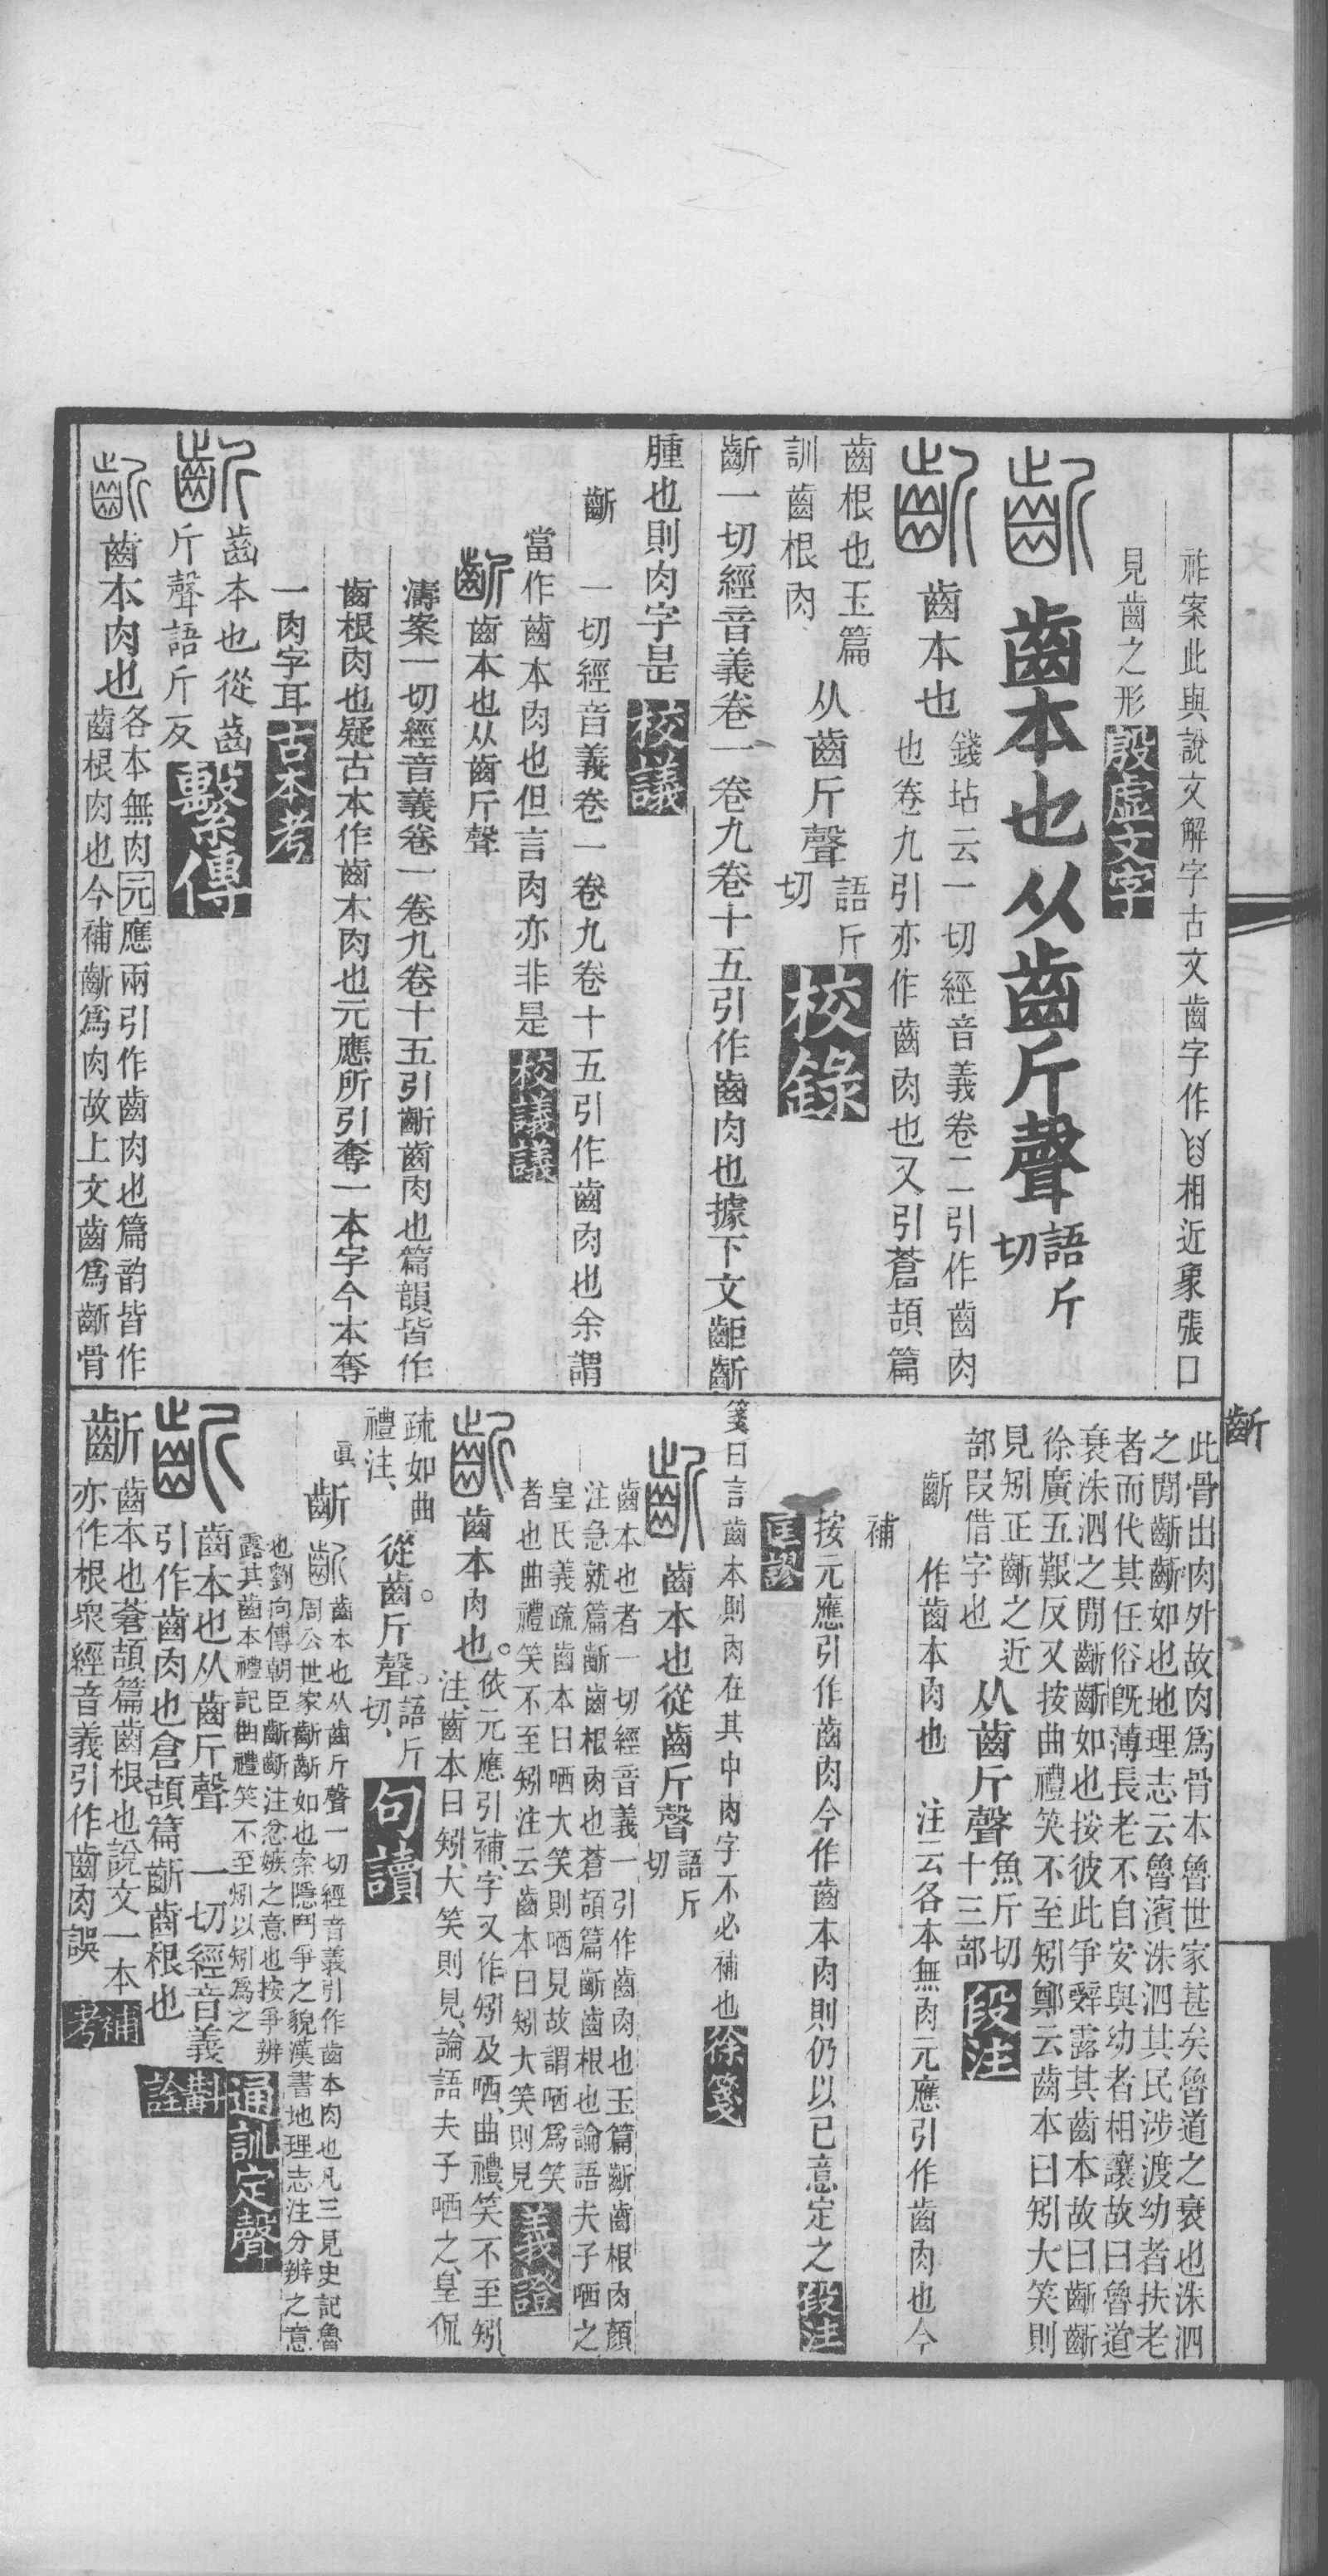 祚案此與說文解字古文齒字作相近象張口
見齒之形殷虛文字
齗齒本也从齒斤聲語斤切
齗齒本也錢坫云一切經音義卷二引作齒肉
也卷九引亦作齒肉也又引蒼頡篇
齒根也玉篇
訓齒根肉从齒斤聲語斤切校錄
齗一切經音義卷一卷九卷十五引作齒肉也據下文齗
腫也則肉字是校議
齗一切經音義卷一卷九卷十五引作齒肉也余謂
當作齒本肉也但言肉亦非是校議議
齗齒本也从齒斤聲
濤案一切經音義卷一卷九卷十五引齗齒肉也篇韻皆作
齒根肉也疑古本作齒本肉也元應所引奪一本字今本奪
一肉字耳古本考
齗齒本也從齒
斤聲語斤反繫傳
齗齒本肉也各本無肉元應兩引作齒肉也篇韵皆作
齒根肉也今補齗爲肉故上文齒爲齗骨
齗
此骨出肉外故肉爲骨本魯世家甚矣魯道之衰也洙泗
之閒齗齗如也地理志云魯濱洙泗其民涉渡幼者扶老
者而代其任俗旣薄長老不自安與幼者相讓故曰魯道
衰洙泗之閒齗齗如也按彼此爭辭露其齒本故曰齗齗
徐廣五艱反又按曲禮笑不至矧鄭云齒本曰矧大笑則
見矧正齗之近
部叚借字也从齒斤聲魚斤切十三部段注
齗作齒本肉也注云各本無肉元應引作齒肉也今
補
按元應引作齒肉今作齒本肉則仍以已意定之段注
匡謬
箋曰言齒本則肉在其中肉字不必補也徐箋
齗齒本也從齒斤聲語斤切
齒本也者一切經音義一引作齒肉也玉篇齗齒根肉顏
注急就篇齗齒根肉也蒼頡篇齗齒根也論語夫子哂之
皇氏義疏齒本曰哂大笑則哂見故謂哂爲笑
者也曲禮笑不至矧注云齒本曰矧大笑則見義證
齗齒本肉也。依元應引補、字又作矧及哂、曲禮、笑不至矧、
注、齒本曰矧、大笑則見、論語夫子哂之、皇侃
疏如曲
禮注、從齒斤聲。語斤切、句讀
齗齗齒本也从齒斤聲一切經音義引作齒本肉也凡三見史記魯
周公世家齗齗如也索隱鬥爭之貌漢書地理志注分辨之意
也劉向傳朝臣齗齗注忿嫉之意也按爭辨
露其齒本禮記曲禮笑不至矧以矧爲之通訓定聲
齗齒本也从齒斤聲一切經音義
引作齒肉也倉頡篇齗齒根也斠詮
齗齒本也蒼頡篇齒根也說文一本
亦作根衆經音義引作齒肉誤補考